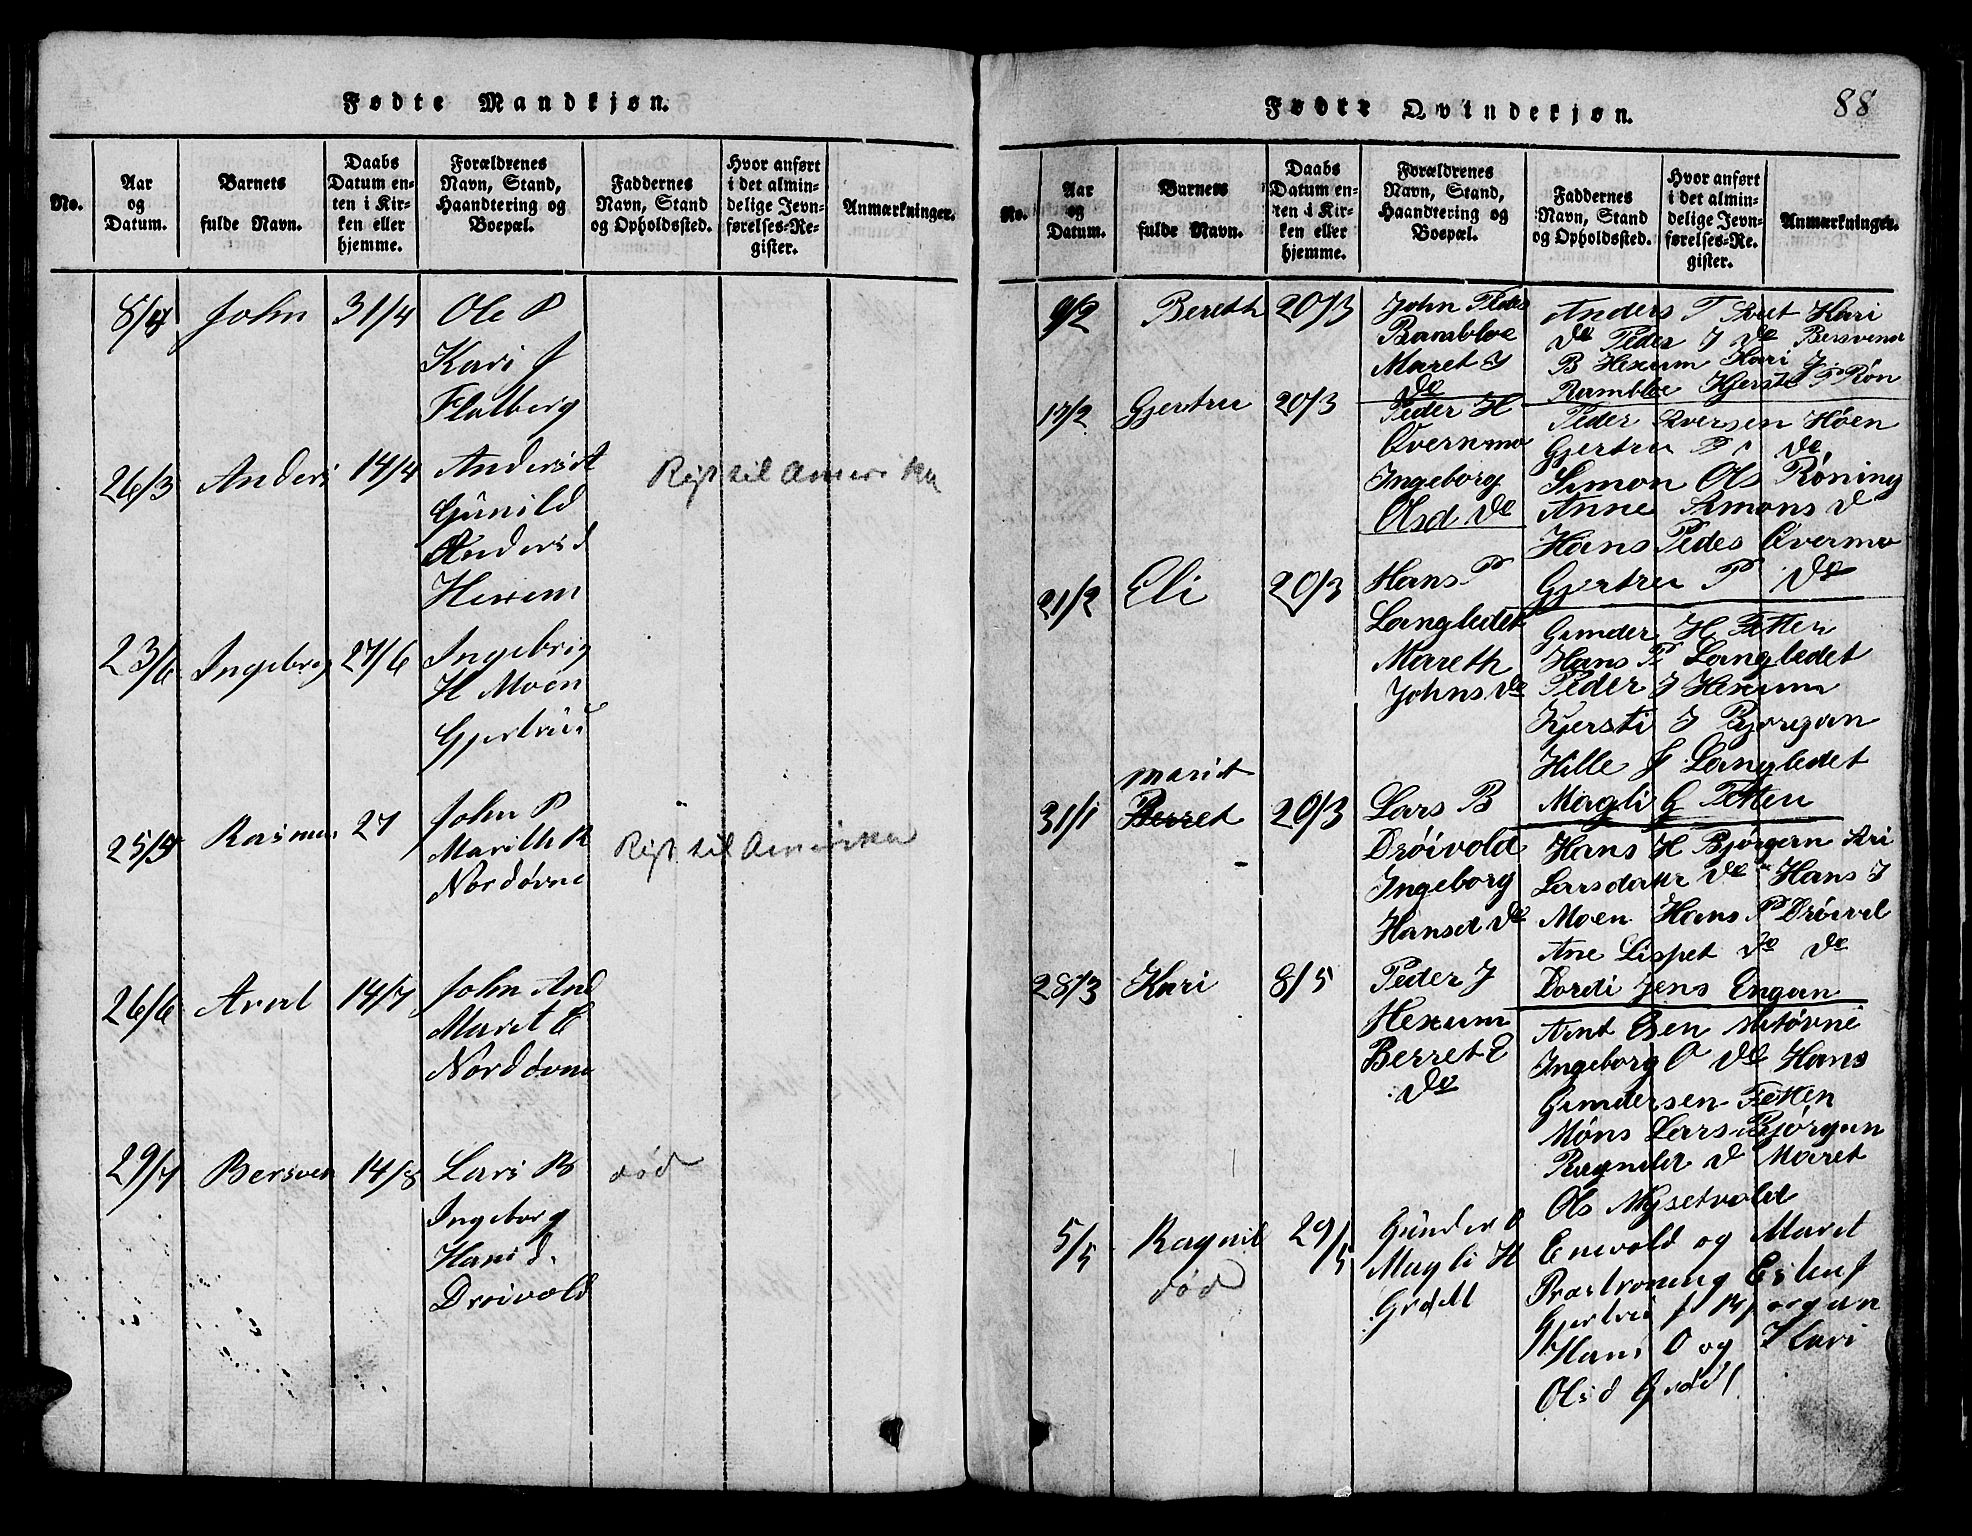 Fødte Mandkjøn.
No.
Aar
og
Datum.
Barnets
fulde Navn.
Daabs
Datum en-
ten i Kir-
ken eller
hjemme.
Forældrenes
Navn, Stand,
Haandtering og
Boepæl.
Faddernes
Navn, Stand
og Opholdssted.
Hvor anført
i det almin-
delige Jevn-
førelses-Re-
gister.
Anmærkninger.
8/4 John 31/4 Ole P
Kari J
Flatberg
26/3 Anders 14/4 Anders
Gunild
Andersd
Hexem
Rejst til Amerika
23/6 Ingebrig 27/6 Ingebrig
H Moen
Gjertrud
25/5 Rasmus 27 John P
Marith R
Nordøvne
Rejst til Amerika
26/6 Arnt 14/7 John And
Maret E
Nordøvne
29/7 Bersven 14/8 Lars B
Ingeborg
Hansd.
Drøivold
død
Fødte Qvindekjøn.
88
No.
Aar
og
Datum.
Barnets
fulde Navn.
Daabs
Datum en-
ten i Kir-
ken eller
hjemme.
Forældrenes
Navn, Stand,
Haandtering og
Boepæl.
Faddernes
Navn, Stand
og Opholdssted.
Hvor anført
i det almin-
delige Jevn-
førelses-Re-
gister.
Anmærkninger.
9/2 Bereth 20/3 John Peders
Rambloe
Maret J
do
Anders T Tvet Kari
do Peder J do Bersvend
B Hexum Kari J
Rambloe Kjersti P Røn
17/2 Gjertru 20/3 Peder H
Overnmo
Ingeborg
Olsd do
Peder Iversen Høen
Gjertru P do
Simon Ols Røning
Anne Simons d
Hans Peders Overmo
Gjertru P do
21/2 Eli 20/3 Hans P
Langledet
Mareth
Johns do
Gunder H Fetten
Hans P Langledet
Peder J Hexum
Kjersti J Bjørgan
Hille J Langledet
Magli G Fetten
31/1 Marit
Berret 20/3 Lars B
Drøivold
Ingeborg
Hansd do
Hans H Bjørgan Ari
Larsdatr do Hans J
Moen Hans P Drøivol
Ane Lispet do do
Dordi Jens Engan
28/3 Kari 8/5 Peder J
Hexum
Berret E
do
Arnt Esen
Ingeborg O do Hans
Gundersen Fetten
Møns Lars Bjørgan
Ragnild d Maret
Ols Mysetvold
5/5 Ragnil
død 29/5 Gunder O
Magli H
Grødt
Enevold og Maret
Præstrøning Esten J
Gjertrud J Bjørgan
Hans O og Kari
Olsd Grødt